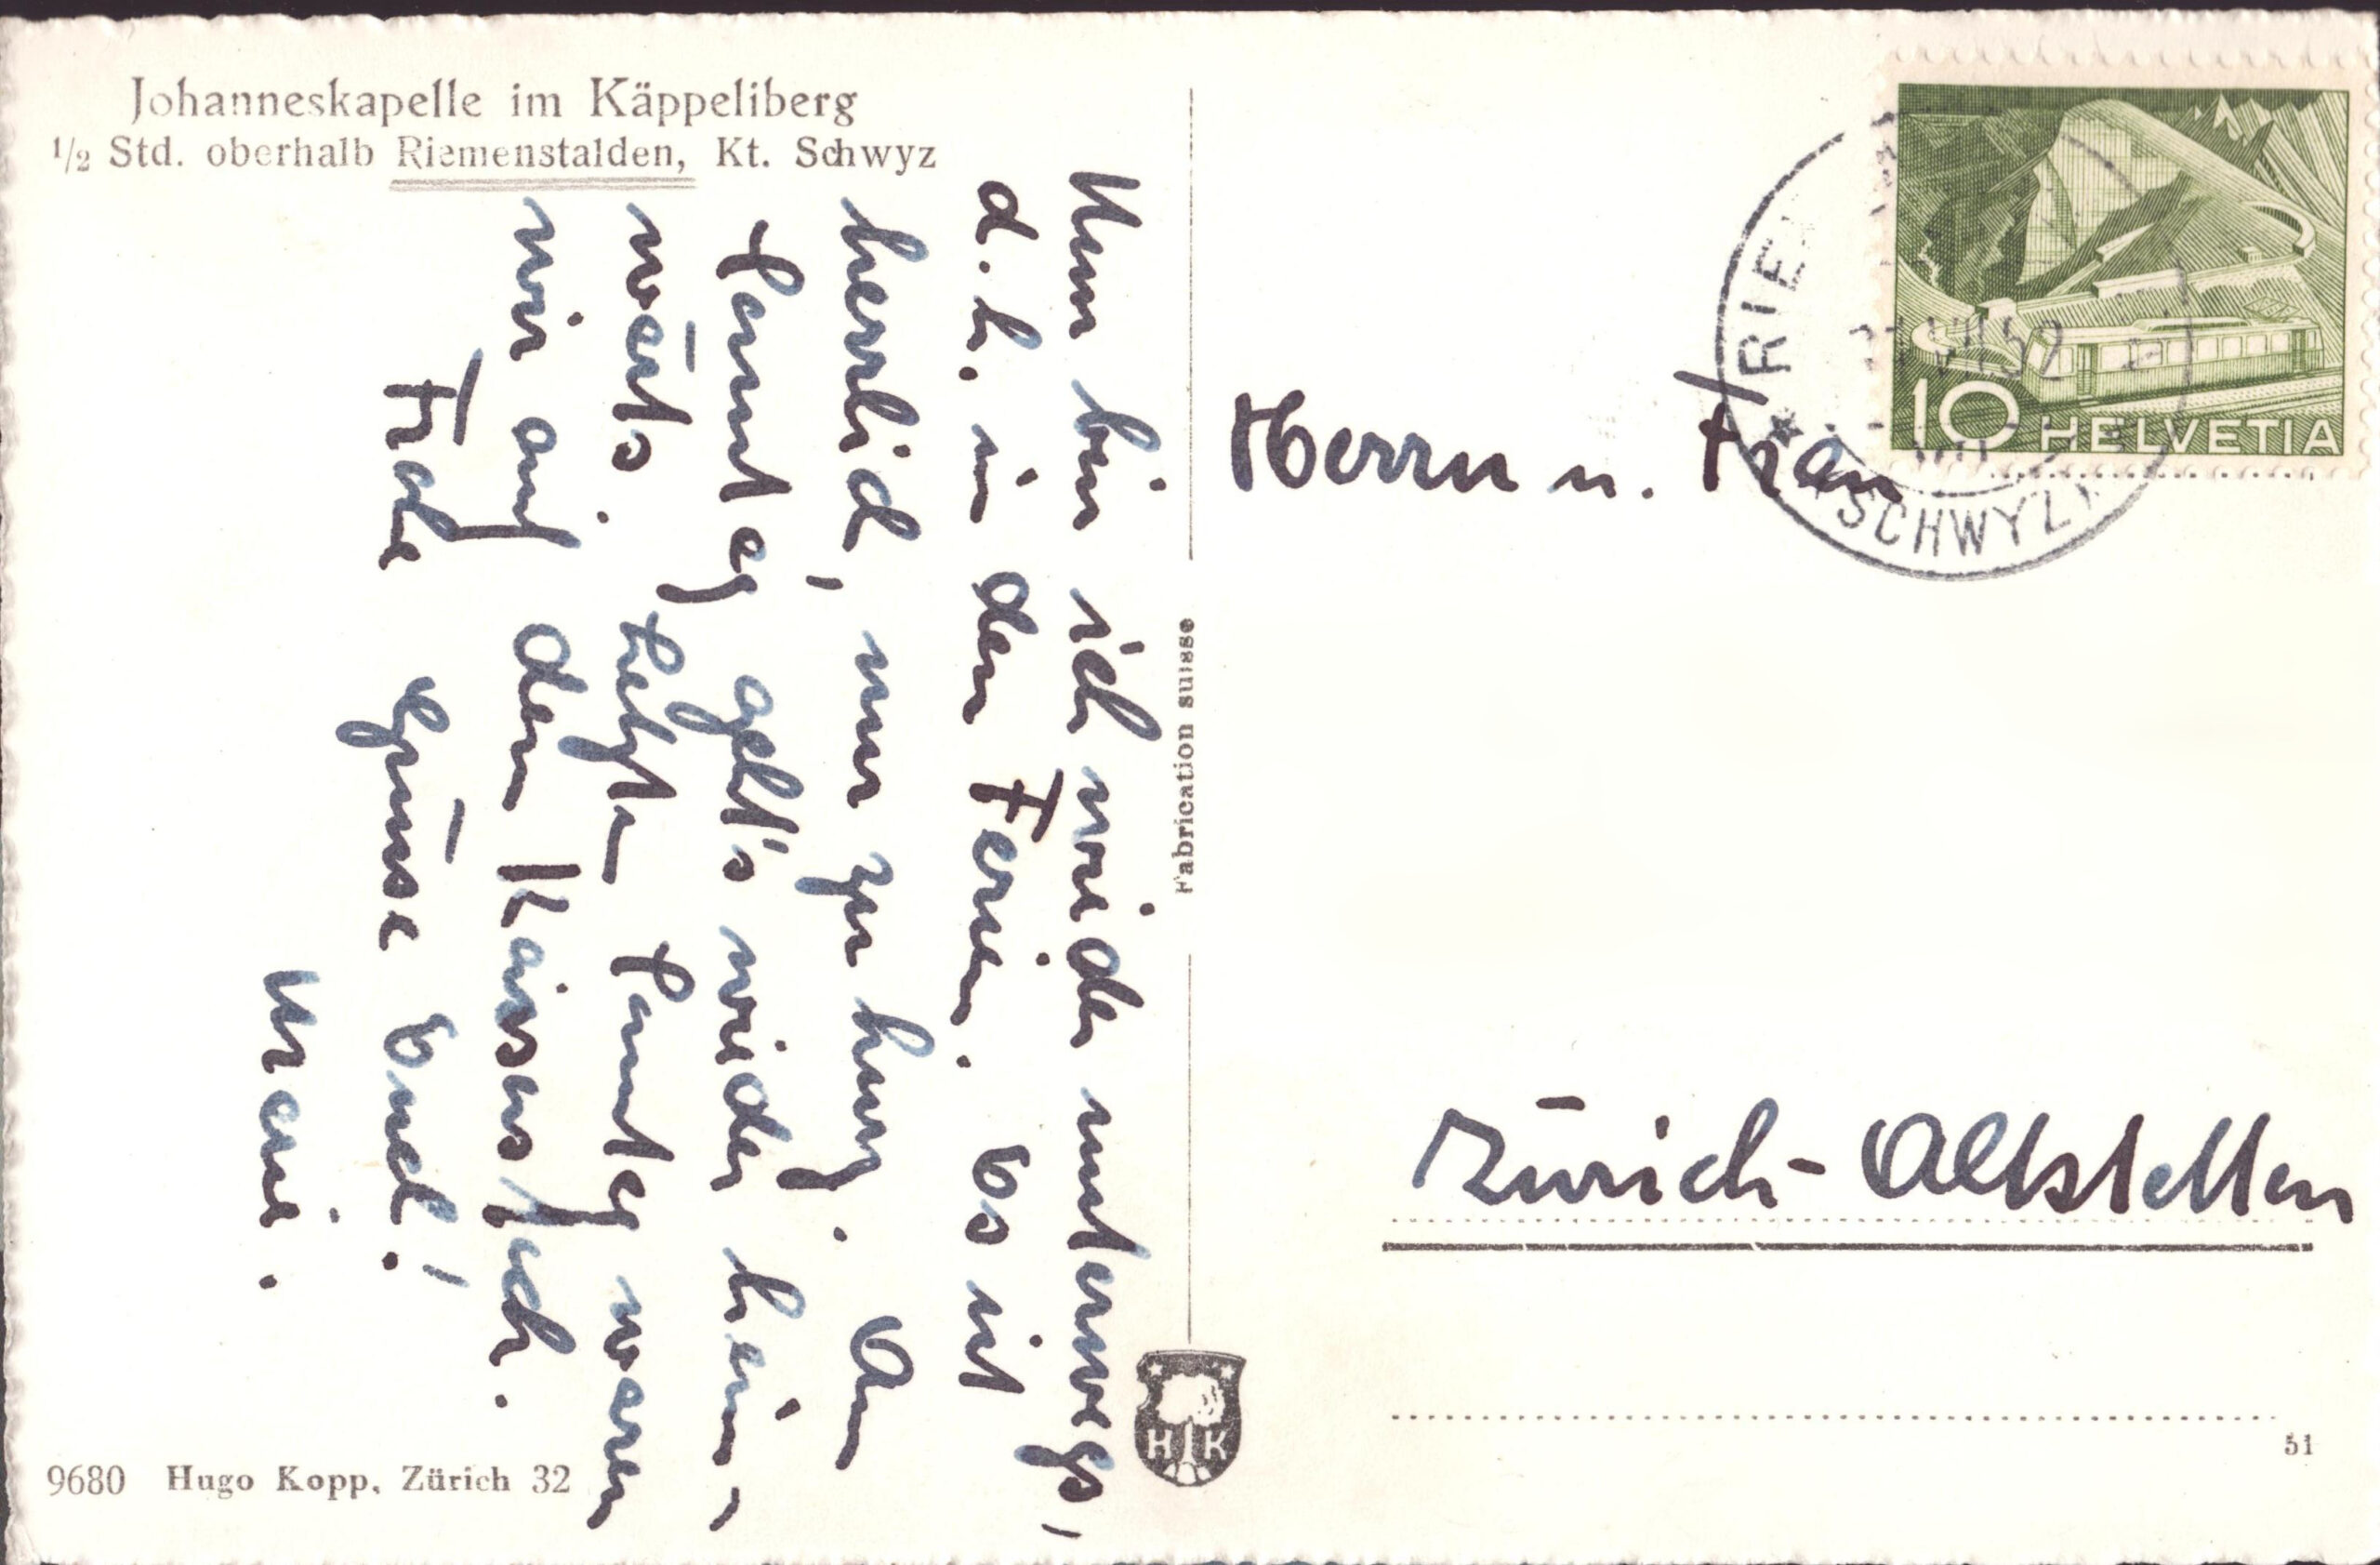 Johanneskapelle im Käppeliberg
1/2 Std. oberhalb Riemenstalden, Kt. Schwyz
Nun bin ich wieder unterwegs,
d. h. in den Ferien. Es ist
herrlich, nur zu kurz. Am
Samstag geht's wieder heim-
wärts. Letzten Samstag waren
wir auf dem Kaiserstock.
Frohe Grüsse Euch!
Marie.
9680 Hugo Kopp, Zürich 32
Fabrication suisse
H K
RIE
52
SCHWYZ
10 HELVETIA
Herrn u. Frau
Zürich-Altstetten
51